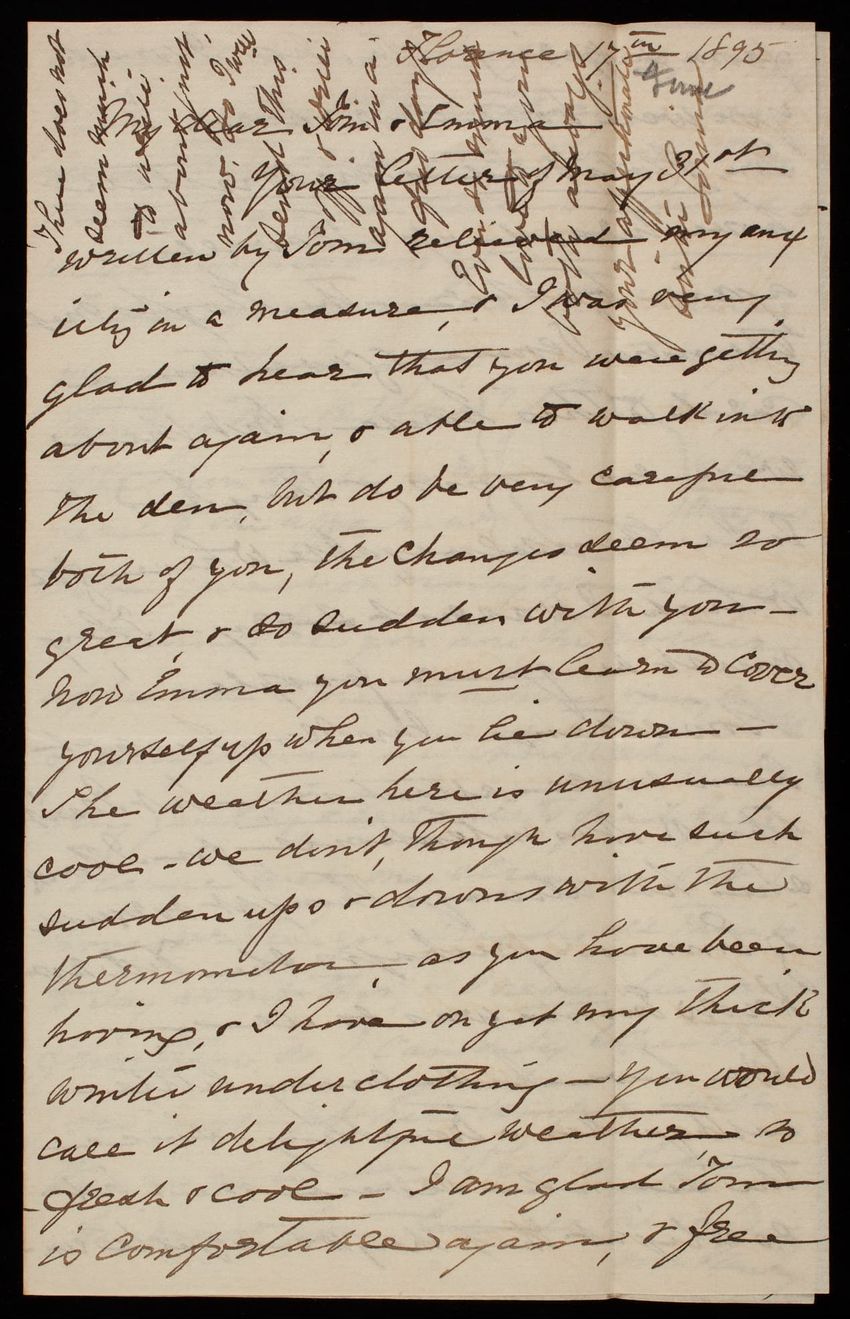 Florence 17th 1895
June
My dear Tom & Emma
Your letter of May 31st
written by Tom relieved my anx
iety in a measure, & I was very
glad to hear that you were getting
about again, & able to walk into
the den, but do be very careful
both of you, the changes seem so
great, & so sudden with you –
now Emma you must learn to cover
yourself up when you lie down –
The weather here is unusually
cool – we don't, though have such
sudden ups & downs with the
thermometer, as you have been
having, & I have on yet my thick
winter underclothing – you would
call it delightful weather, so
fresh & cool – I am glad Tom
is comfortable again, & free
There does not
seem much
to write
about just
now, so I will
send this
off & write
again in a
few days
With much
love to you
both always
your affectionate